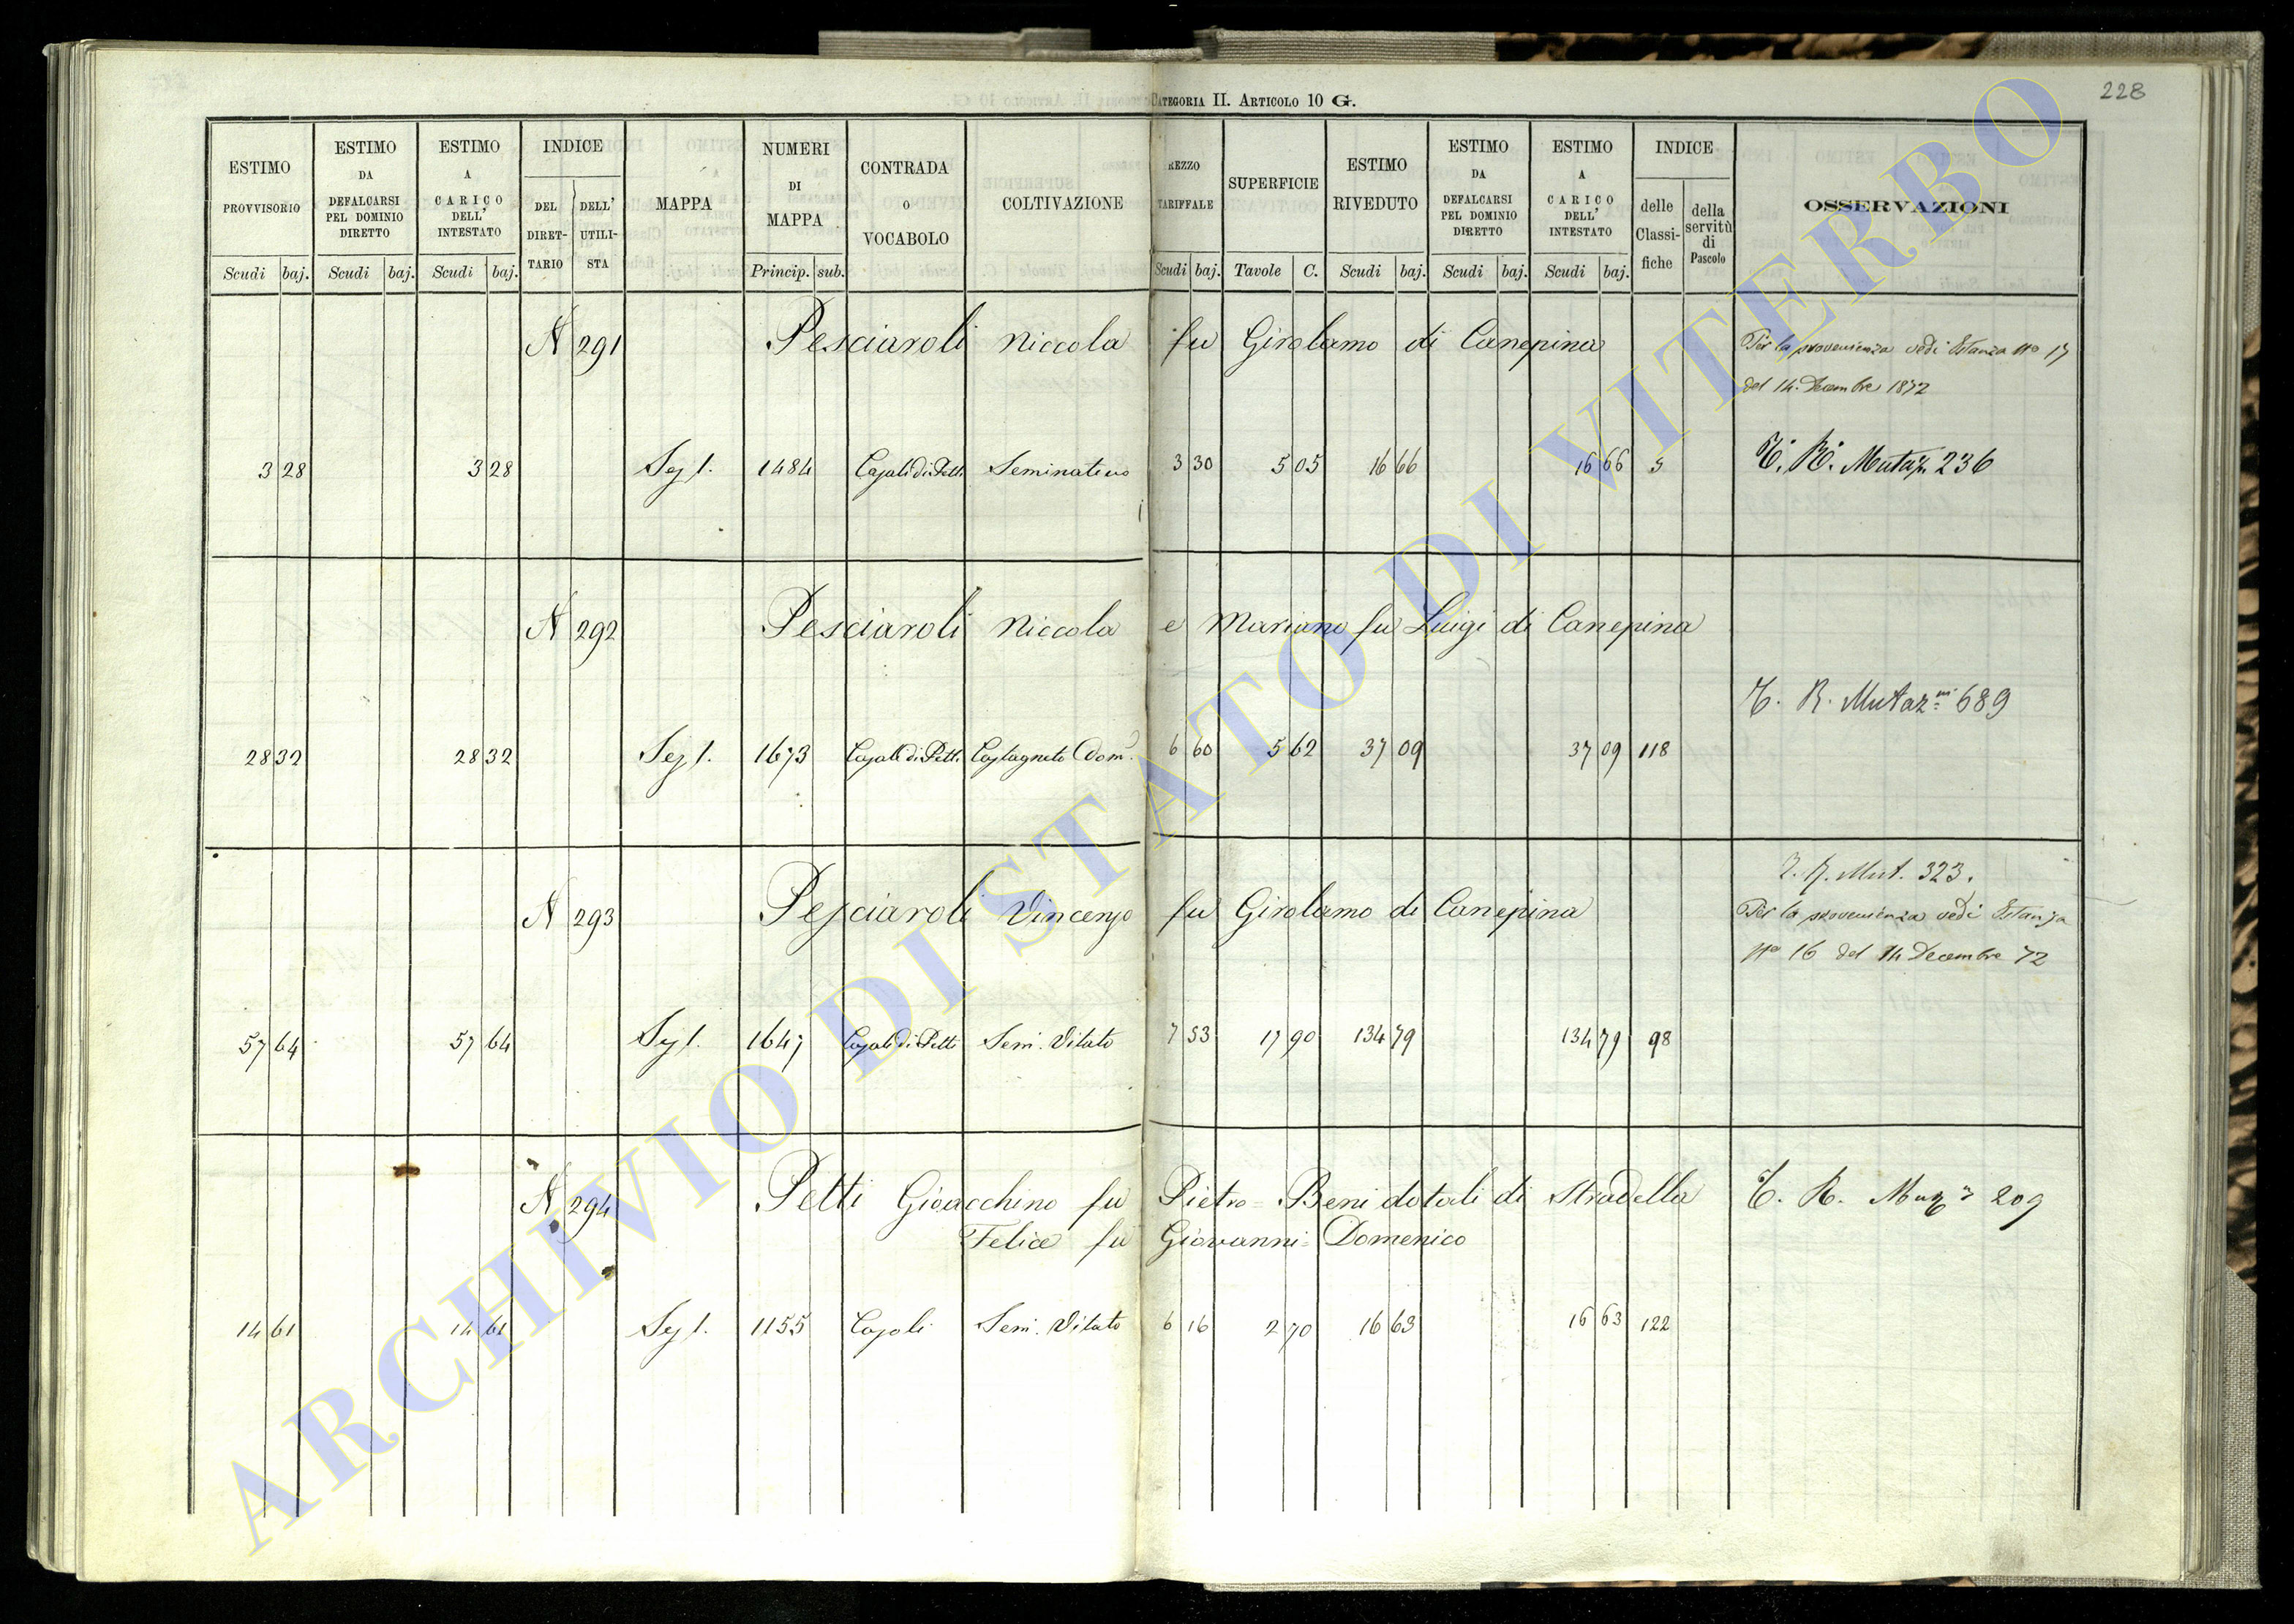 CATEGORIA II. ARTICOLO 10 G.
228
ESTIMO PROVVISORIO Scudi baj.
ESTIMO DA DEFALCARSI PEL DOMINIO DIRETTO Scudi baj.
ESTIMO A CARICO DELL' INTESTATO Scudi baj.
INDICE DEL DIRET-TARIO DELL' UTILI-STA
MAPPA
NUMERI DI MAPPA Princip. sub.
CONTRADA O VOCABOLO
COLTIVAZIONE
REZZO TARIFFALE Scudi baj.
SUPERFICIE Tavole C.
ESTIMO RIVEDUTO Scudi baj.
ESTIMO DA DEFALCARSI PEL DOMINIO DIRETTO Scudi baj.
ESTIMO A CARICO DELL' INTESTATO Scudi baj.
INDICE delle Classi-fiche della servitù di Pascolo
OSSERVAZIONI
N 291 Pesciaroli Niccola fu Girolamo di Canepina
Per la provenienza vedi Istanza No 17
del 14. Decembre 1872
3 28 3 28 Sez 1. 1484 Casali di Petti Seminativo 3 30 5 05 16 66 16 66 5 T. R. Mutaz. 236
N 292 Pesciaroli Niccola e Mariano fu Luigi di Canepina
T. R. Mutazni 689
28 32 28 32 Sez 1. 1673 Casali di Petti Castagneto Dom. 6 60 5 62 37 09 37 09 118
T. R. Mut. 323.
N 293 Pesciaroli Vincenzo fu Girolamo di Canepina
Per la provenienza vedi Istanza
No 16 del 14 Decembre 72
57 64 57 64 Sez 1. 1647 Casali di Petti Sem. Vitato 7 53 17 90 134 79 134 79 98
N 294 Petti Gioacchino fu Pietro = Beni dotali di Stradella T. R. 209
Felice fu Giovanni = Domenico
14 61 14 61 Sez 1. 1155 Casali Sem. Vitato 6 16 2 70 16 63 16 63 122
ARCHIVIO DI STATO DI VITERBO